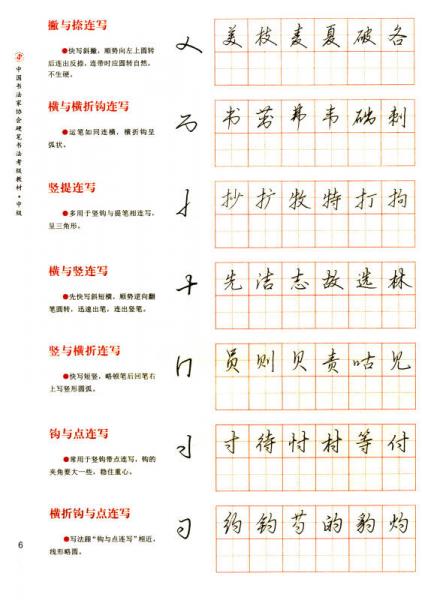 中国书法家协会硬笔书法考级教材·中级
撇与捺连写
●快写斜撇，顺势向左上圆转
后连出反捺，连带时应圆转自然，
不生硬。
美枝麦夏破各
横与横折钩连写
●运笔如同连横，横折钩呈
弧状。
书 韦 刺
竖提连写
●多用于竖钩与提笔相连写，
呈三角形。
抄扩牧特打拘
横与竖连写
●先快写斜短横，顺势逆向翻
笔圆转，迅速出笔，连出竖笔。
先洁志故选林
竖与横折连写
●快写短竖，略顿笔后回笔右
上写竖形圆弧。
员则贝责咕见
钩与点连写
●常用于竖钩带点连写，钩的
夹角要大一些，稳住重心。
寸待忖村等付
横折钩与点连写
●写法跟“钩与点连写”相近，
线形略圆。
约钧芍的豹灼
6